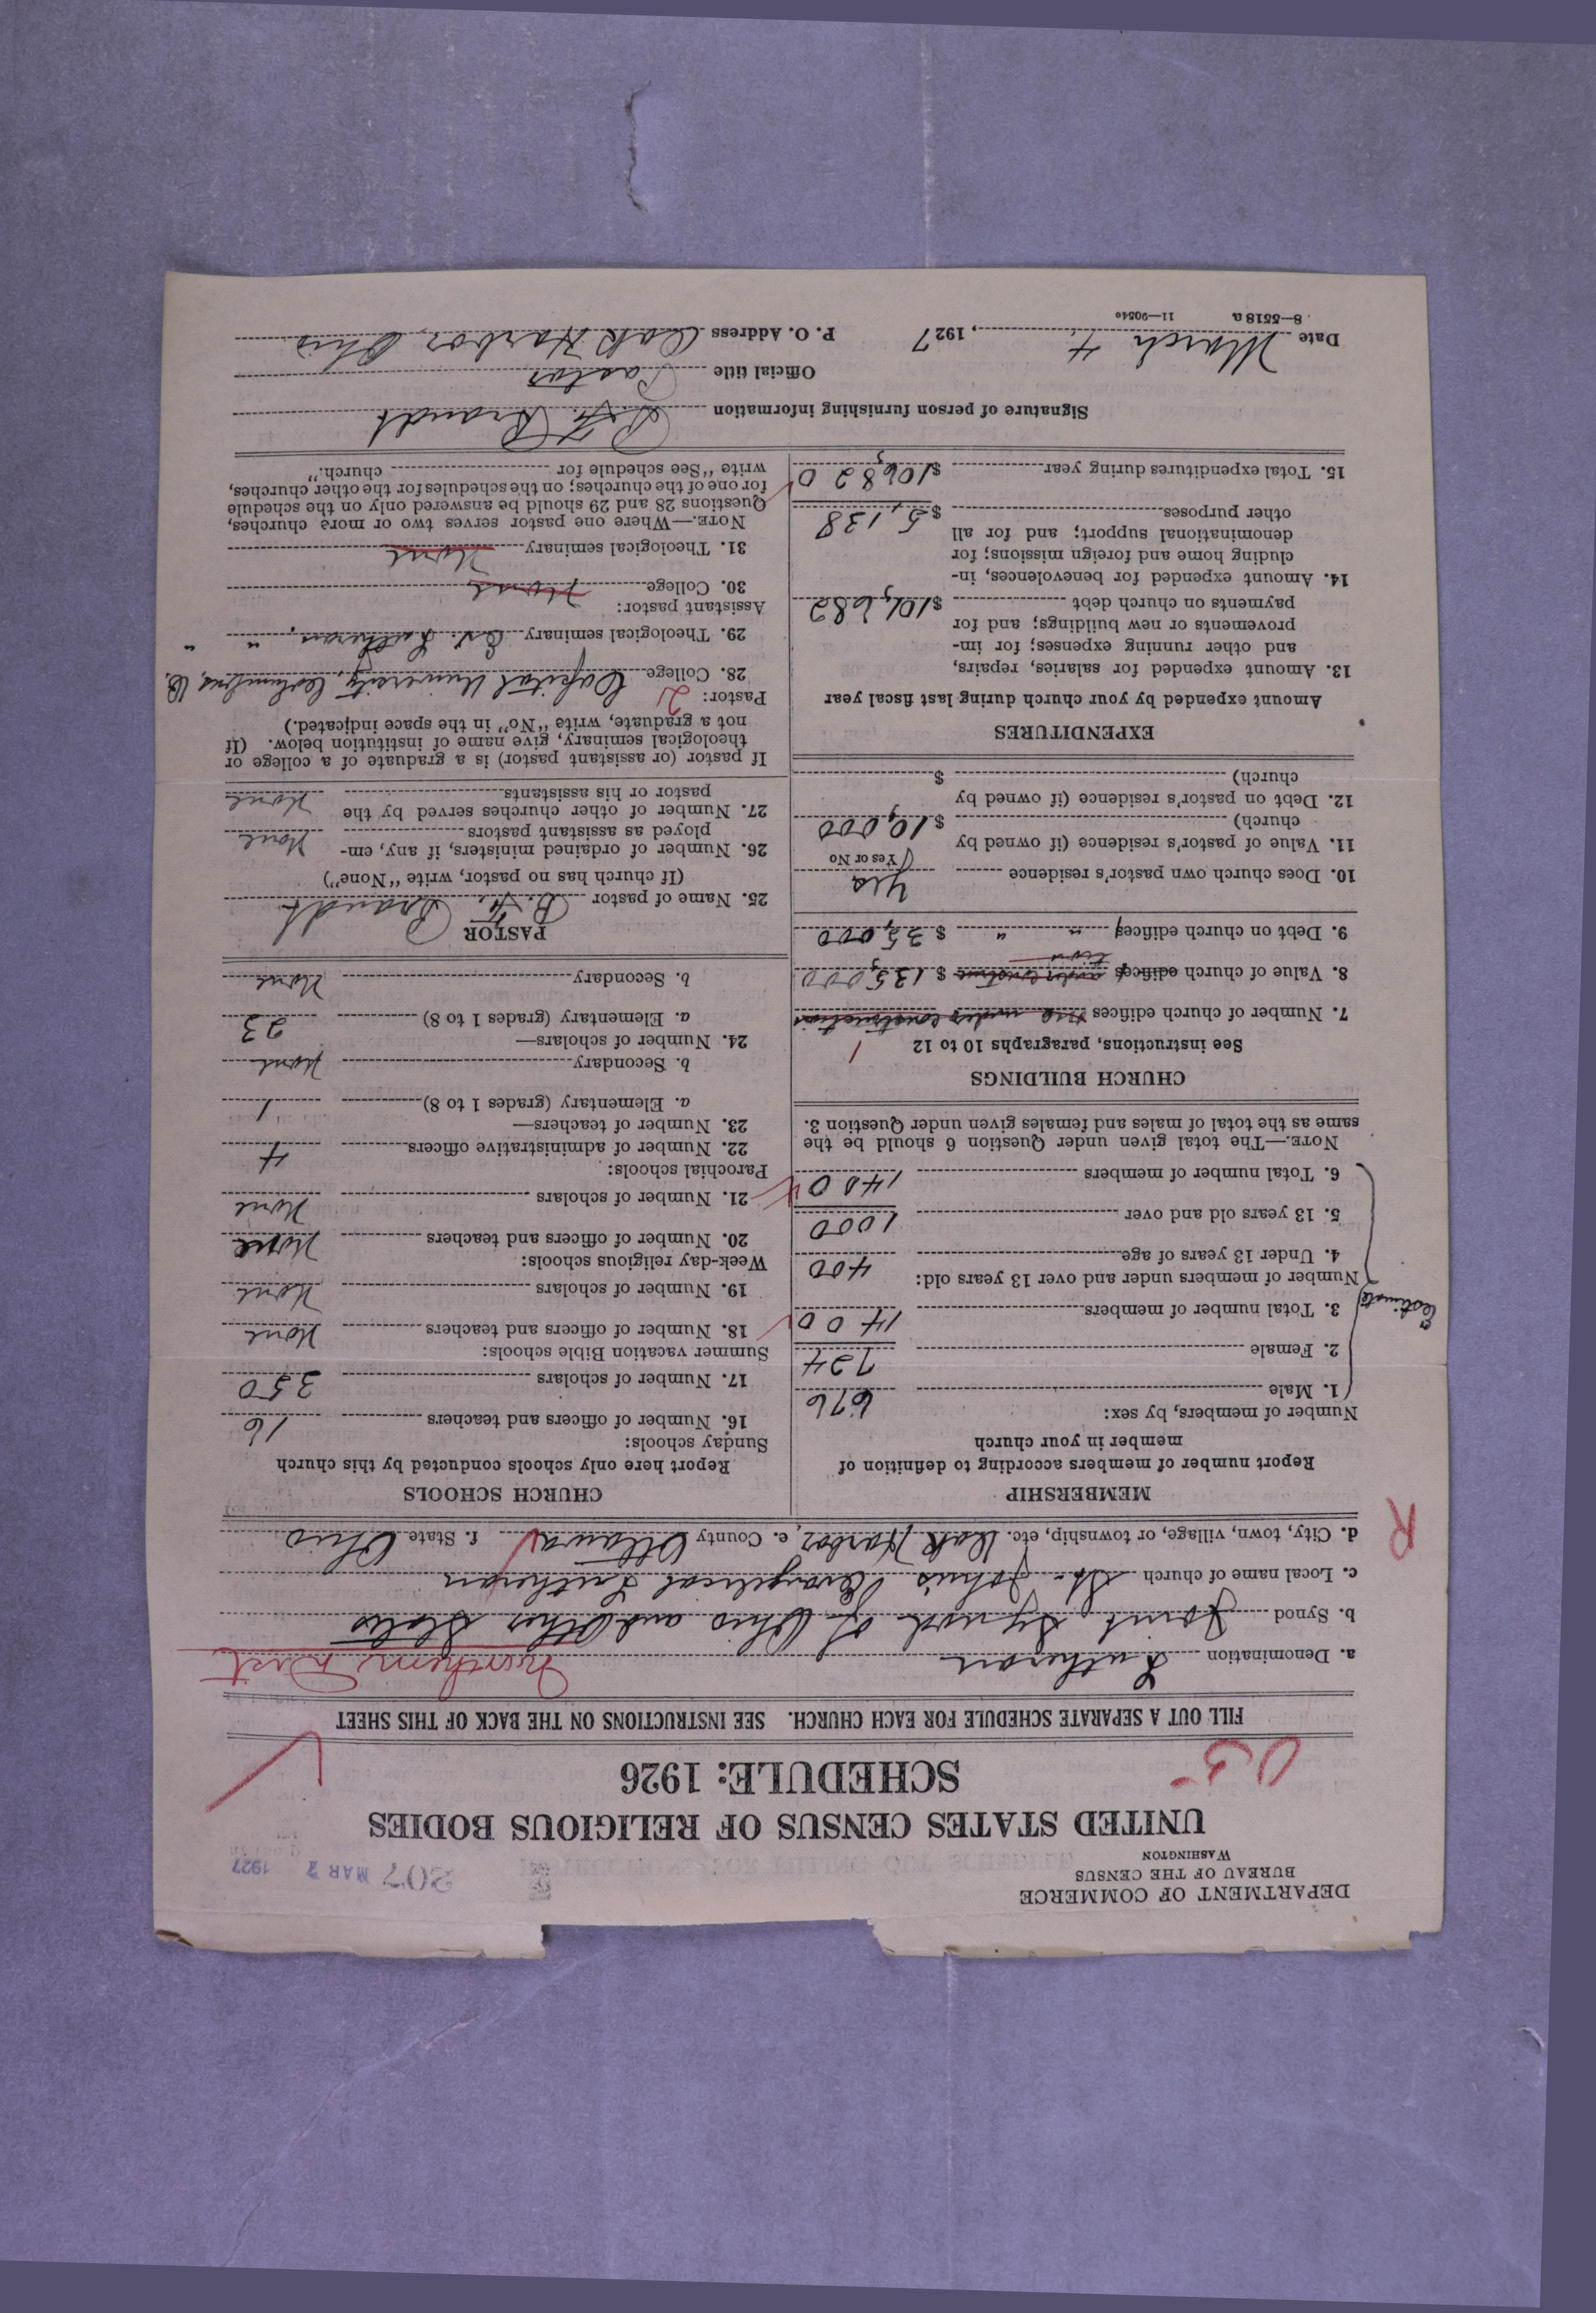 DEPARTMENT OF COMMERCE
BUREAU OF THE CENSUS
WASHINGTON
207 MAR 7 1927
UNITED STATES CENSUS OF RELIGIOUS BODIES
SCHEDULE: 1926
FILL OUT A SEPARATE SCHEDULE FOR EACH CHURCH. SEE INSTRUCTIONS ON THE BACK OF THIS SHEET
a. Denomination Lutheran Northern Dist
b. Synod Joint Synod of Ohio and Other States
c. Local name of church St. John's Evangelical Lutheran
d. City, town, village, or township, etc. Oak Harbor, e. County Ottawa f. State Ohio
R
MEMBERSHIP
Report number of members according to definition of
member in your church
Number of members, by sex:
1. Male 676
2. Female 724
3. Total number of members 1400
Estimate
Number of members under and over 13 years old:
4. Under 13 years of age 400
5. 13 years old and over 1000
6. Total number of members 1400
NOTE.—The total given under Question 6 should be the
same as the total of males and females given under Question 3.
CHURCH BUILDINGS
See instructions, paragraphs 10 to 12
1
7. Number of church edifices one under construction
8. Value of church edifices under construction $ 135,000
9. Debt on church edifices " " $ 35,000
10. Does church own pastor's residence Yes
Yes or No
11. Value of pastor's residence (if owned by
church) $ 10,000
12. Debt on pastor's residence (if owned by
church) $
EXPENDITURES
Amount expended by your church during last fiscal year
13. Amount expended for salaries, repairs,
and other running expenses; for im-
provements or new buildings; and for
payments on church debt $ 101,682
14. Amount expended for benevolences, in-
cluding home and foreign missions; for
denominational support; and for all
other purposes $ 5,138
15. Total expenditures during year $ 106,820
CHURCH SCHOOLS
Report here only schools conducted by this church
Sunday schools:
16. Number of officers and teachers 16
17. Number of scholars 350
Summer vacation Bible schools:
18. Number of officers and teachers None
19. Number of scholars None
Week-day religious schools:
20. Number of officers and teachers None
21. Number of scholars None
Parochial schools:
22. Number of administrative officers 4
23. Number of teachers—
a. Elementary (grades 1 to 8) 1
b. Secondary None
24. Number of scholars—
a. Elementary (grades 1 to 8) 23
b. Secondary None
PASTOR
25. Name of pastor B. F. Brandt
(If church has no pastor, write "None")
26. Number of ordained ministers, if any, em-
ployed as assistant pastors None
27. Number of other churches served by the
pastor or his assistants None
If pastor (or assistant pastor) is a graduate of a college or
theological seminary, give name of institution below. (If
not a graduate, write "No" in the space indicated.)
Pastor: 2
28. College Capital University, Columbus, O.
29. Theological seminary Ev. Lutheran, " "
Assistant pastor:
30. College None
31. Theological seminary None
NOTE.—Where one pastor serves two or more churches,
Questions 28 and 29 should be answered only on the schedule
for one of the churches; on the schedules for the other churches,
write "See schedule for church."
Signature of person furnishing information B. F. Brandt
Official title Pastor
Date March 4, 1927 P. O. Address Oak Harbor, Ohio
8—5518 a 11—9054